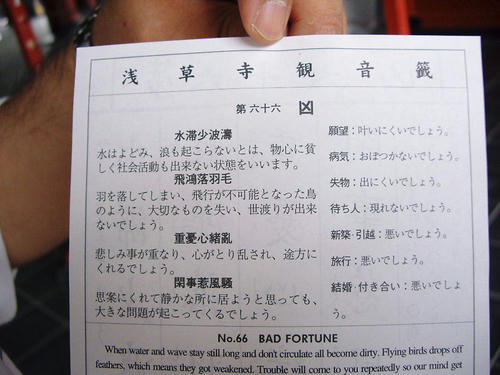 浅草寺観音籤
第六十六 凶
水滞少波濤
水はよどみ、浪も起こらないとは、物心に貧
しく社会活動も出来ない状態をいいます。
飛鴻落羽毛
羽を落してしまい、飛行が不可能となった鳥
のように、大切なものを失い、世渡りが出来
ないでしょう。
重憂心緒亂
悲しみ事が重なり、心がとり乱され、途方に
くれるでしょう。
閑事惹風騷
思案にくれて静かな所に居ようと思っても、
大きな問題が起こってくるでしょう。
願望：叶いにくいでしょう。
病気：おぼつかないでしょう。
失物：出にくいでしょう。
待ち人：現れないでしょう。
新築・引越：悪いでしょう。
旅行：悪いでしょう。
結婚・付き合い：悪いでしょ
う。
No.66 BAD FORTUNE
When water and wave stay still long and don't circulate all become dirty. Flying birds drops off
feathers, which means they got weakened. Trouble will come to you repeatedly so our mind get